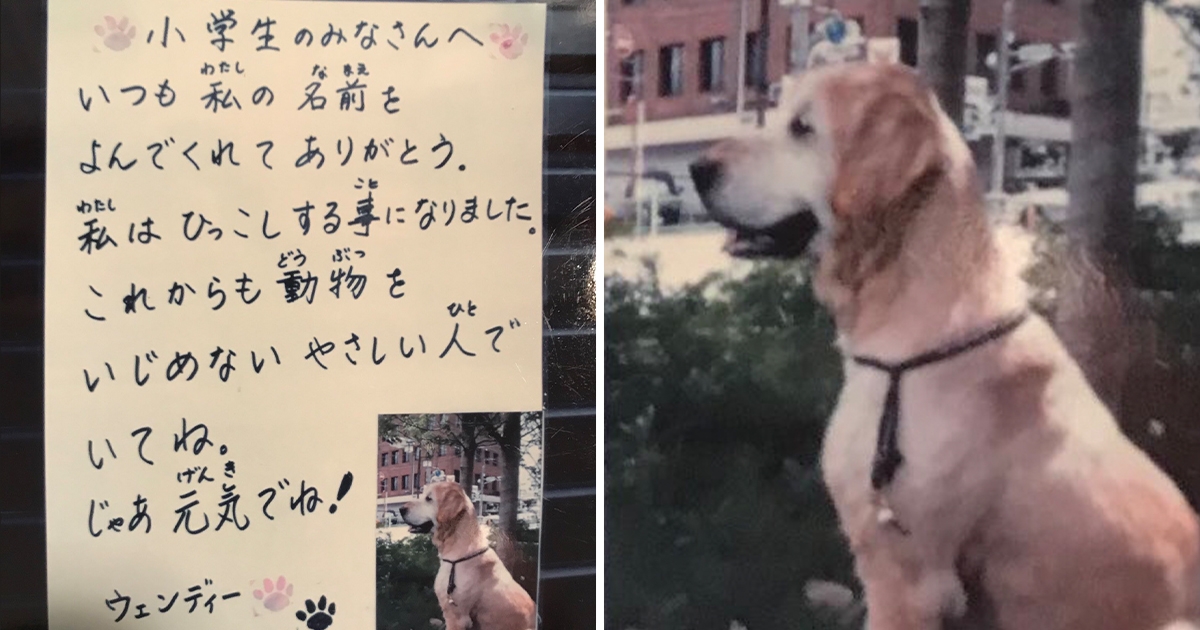 小学生のみなさんへ
いつも私の名前を
よんでくれてありがとう。
私はひっこしする事になりました。
これからも動物を
いじめないやさしい人で
いてね。
じゃあ元気でね!
ウェンディー